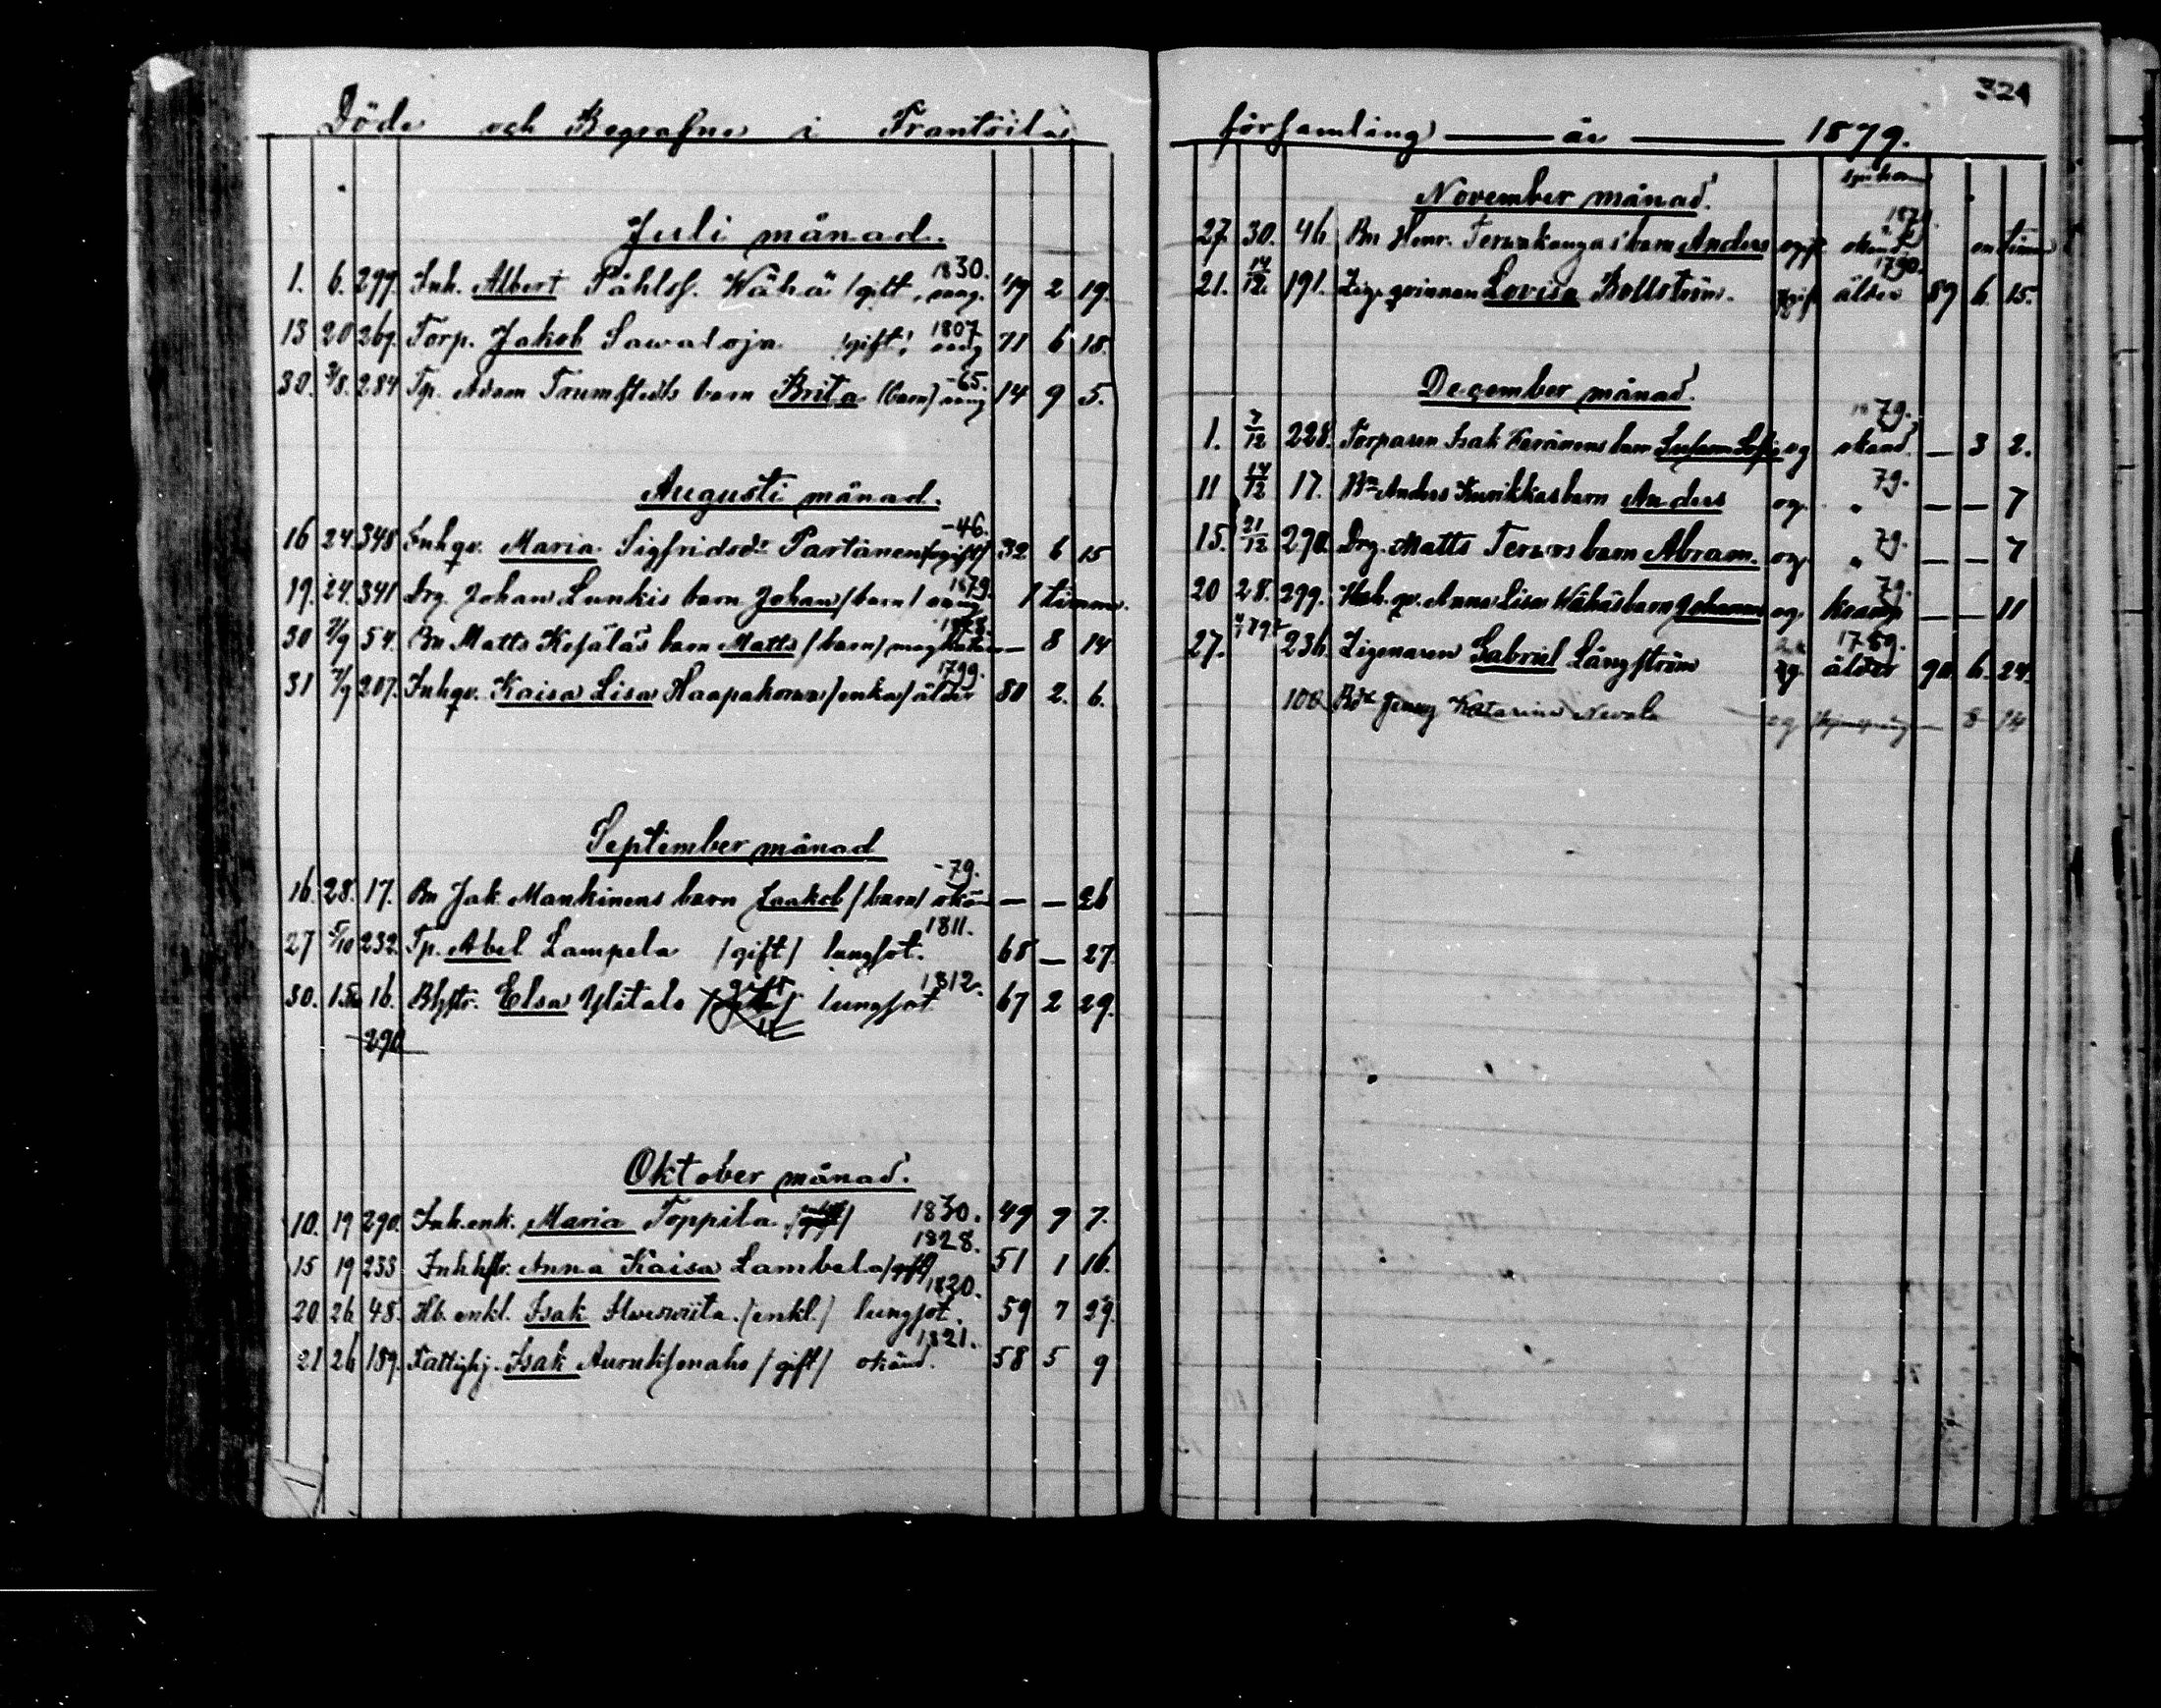 324
Döde och Begrafne i Frantsila
församling år 1879.
Juli månad.
1. 6. 299. Inh. Albert Påhlsf. Wähä /gift, 1830. 49 2 19.
13 20 269. Torp. Jakob Sawaloja /gift/ 1807 71 6 18.
30. 3/8. 284 Tp. Adam Trumstedts barn Brita (barn) -65. 14 9 5.
Augusti månad.
16 24. 348 Inhqv. Maria Sigfridsdr Partanen -46. 32 6 15
19. 24. 341 Drg. Johan Lunkis barn Johan /barn/ 1879. 1 timme.
30 7/9 54. Bn Matts Kesäläs barn Matts /barn/ 1878. — 8 14
31 7/9 207. Inhqv. Kaisa Lisa /enka/ ålder 1799. 80 2. 6.
September månad
16. 28. 17. Bn Jak. Mankinens barn Jaakob /barn/ okän -79. — — 26
27 5/10 232. Tp. Abel Lampela /gift/ lungsot. 1811. 68 — 27.
30. 16. Elsa Ylitalo gift lungsot 1812. 67 2 29.
290
Oktober månad.
10. 19 290. Inh.enk. Maria Toppila 1830. 49 9 7.
15 19 233 Anna Kaisa Lambela /gift/ 1828. 51 1 16.
20. 26 48. Hb. enkl. Isak /enkl./ lungsot. 1820. 59 7 29.
21 26 189. Fattighj. Isak /gift/ okänd. 1821. 58 5 9
November månad.
27. 30. 46 Bn Henr. Terwakangas barn Anders ogift okänd 1879. en timme
21. 14/12 191. qvinnan Lovisa Bollström. ålder 1790. 89 6. 15.
December månad.
1. 7/12 228. Torparen Isak Keränens barn og okänd. 1879. — 3 2.
11 14/12 17. Bn Anders Kurikkas barn Anders og. " 79. — — 7
15. 21/12 290. Drg. Matts Terwos barn Abram. og. " 79. — — 7
20 28. 299. qv. Anna Lisa Wähäs barn Johanna og. kramp 79. — — 11
27. 236. Gabriel Långström ålder 1789. 90. 6. 24.
100 Katarina Nevala og — 8 14